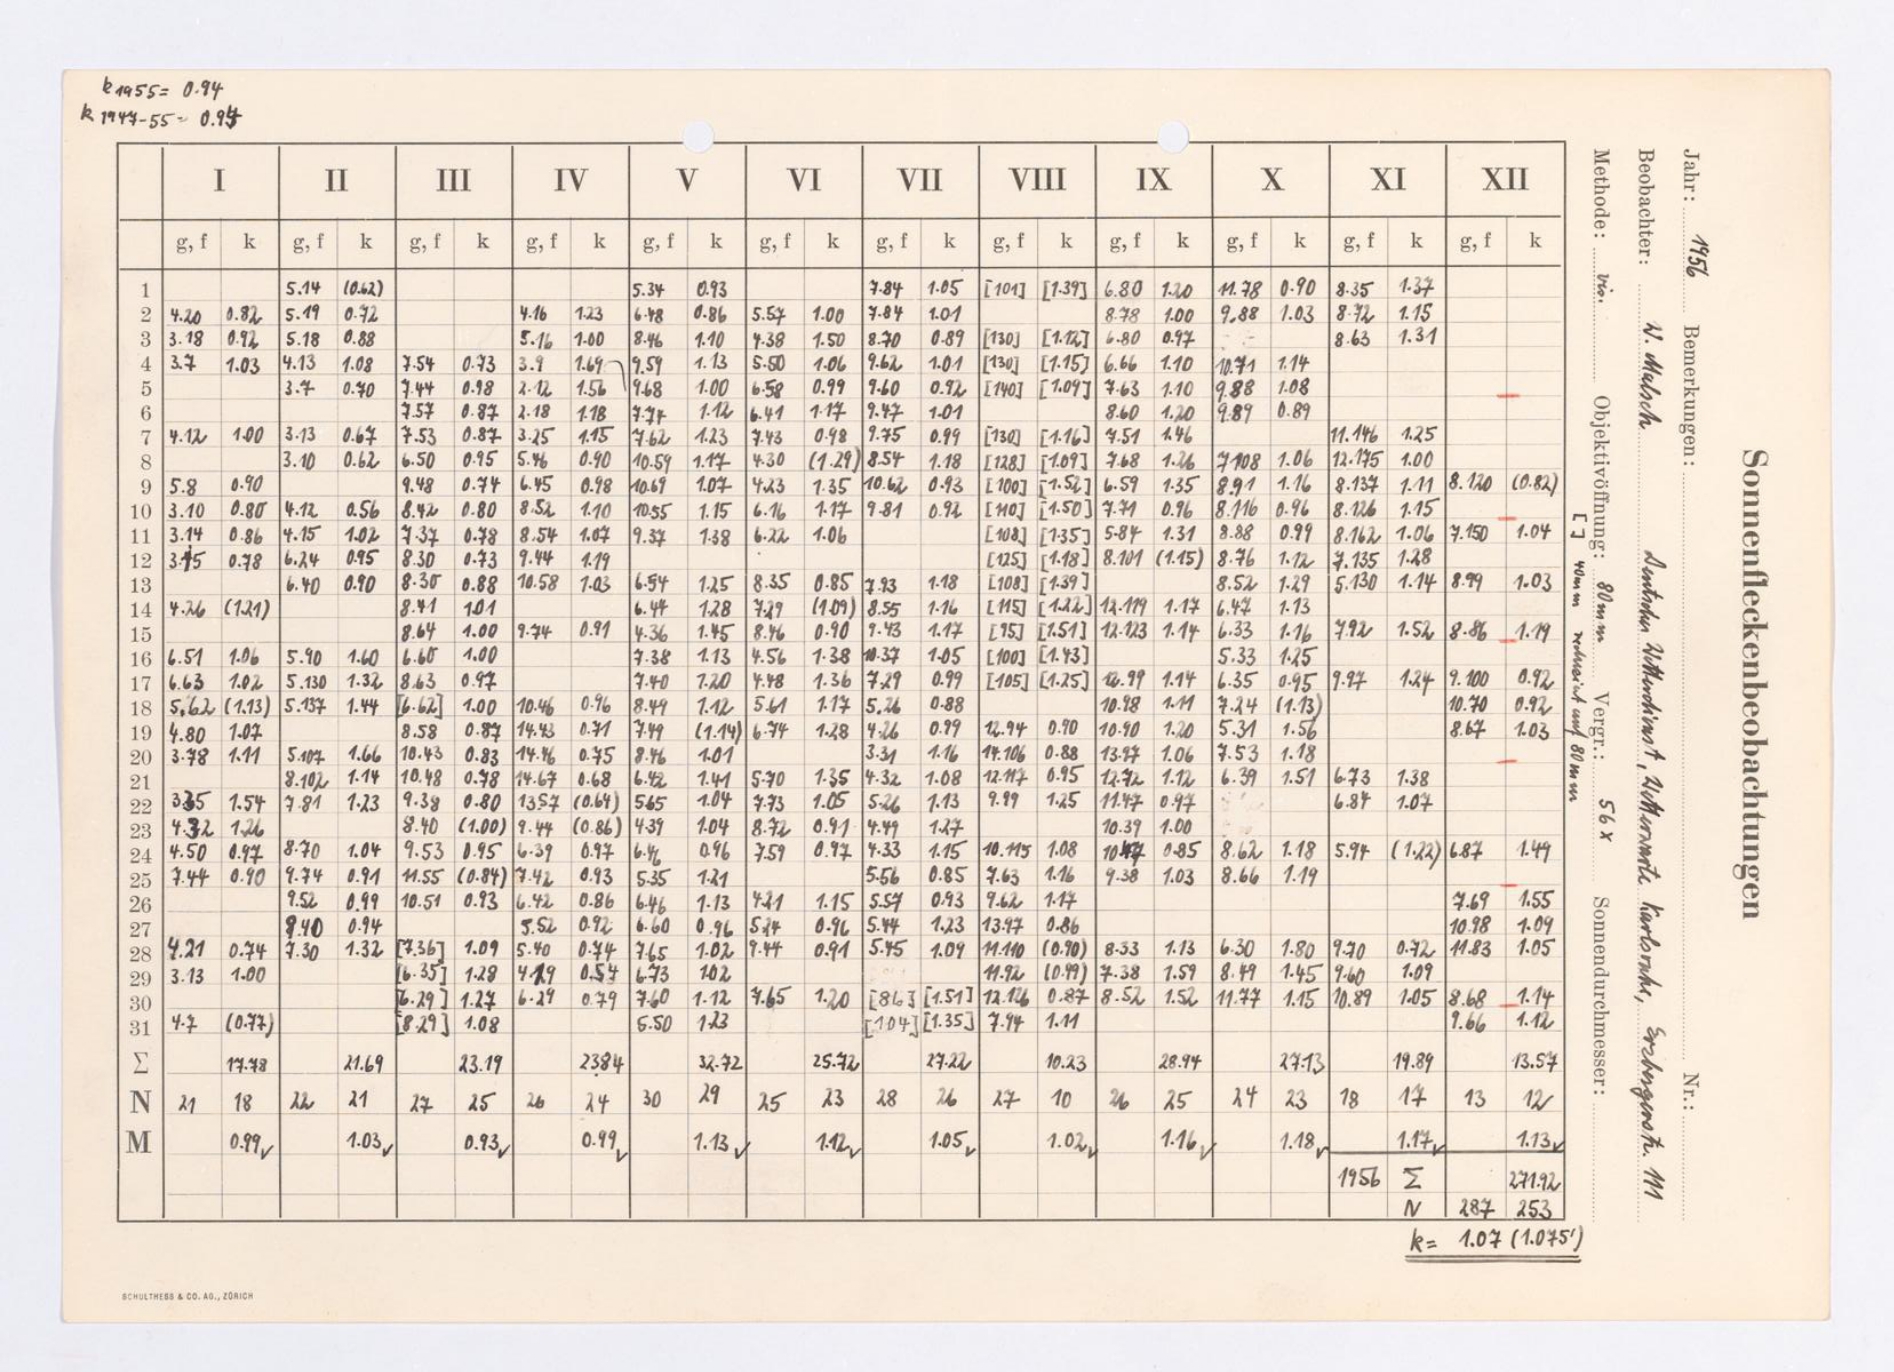 k 1955 = 0.94
k 1947-55 = 0.97
I II III IV V VI VII VIII IX X XI XII
g, f k g, f k g, f k g, f k g, f k g, f k g, f k g, f k g, f k g, f k g, f k g, f k
1 5.14 (0.62) 5.34 0.93 7.84 1.05 [101] [1.39] 6.80 1.20 11.78 0.90 8.35 1.37
2 4.20 0.82 5.19 0.72 4.16 1.23 6.48 0.86 5.57 1.00 7.84 1.01 8.78 1.00 9.88 1.03 8.72 1.15
3 3.18 0.92 5.18 0.88 5.16 1.00 8.46 1.10 4.38 1.50 8.70 0.89 [130] [1.12] 6.80 0.97 8.63 1.31
4 3.7 1.03 4.13 1.08 7.54 0.73 3.9 1.69 9.59 1.13 5.50 1.06 9.62 1.01 [130] [1.15] 6.66 1.10 10.71 1.14
5 3.7 0.70 7.44 0.98 2.12 1.56 9.68 1.00 6.58 0.99 9.60 0.92 [140] [1.09] 7.63 1.10 9.88 1.08
6 7.57 0.87 2.18 1.18 7.74 1.12 6.41 1.17 9.47 1.01 8.60 1.20 9.89 0.89
7 4.12 1.00 3.13 0.67 7.53 0.87 3.25 1.15 7.62 1.23 7.43 0.98 9.75 0.99 [130] [1.16] 7.51 1.46 11.146 1.25
8 3.10 0.62 6.50 0.95 5.46 0.90 10.59 1.17 4.30 (1.29) 8.54 1.18 [128] [1.09] 7.68 1.26 7.108 1.06 12.175 1.00
9 5.8 0.90 9.48 0.74 6.45 0.98 10.69 1.07 4.23 1.35 10.62 0.93 [100] [1.52] 6.59 1.35 8.91 1.16 8.137 1.11 8.120 (0.82)
10 3.10 0.80 4.12 0.56 8.42 0.80 8.52 1.10 10.55 1.15 6.16 1.17 9.81 0.92 [110] [1.50] 7.71 0.96 8.116 0.96 8.126 1.15
11 3.14 0.86 4.15 1.02 7.37 0.78 8.54 1.07 9.37 1.38 6.22 1.06 [108] [1.35] 5.84 1.31 8.88 0.99 8.162 1.06 7.150 1.04
12 3.15 0.78 6.24 0.95 8.30 0.73 9.44 1.19 [125] [1.18] 8.101 (1.15) 8.76 1.12 7.135 1.28
13 6.40 0.90 8.30 0.88 10.58 1.03 6.54 1.25 8.35 0.85 7.93 1.18 [108] [1.39] 8.52 1.29 5.130 1.14 8.99 1.03
14 4.26 (1.21) 8.41 1.01 6.44 1.28 7.29 (1.09) 8.55 1.16 [115] [1.22] 12.119 1.17 6.47 1.13
15 8.64 1.00 9.74 0.91 4.36 1.45 8.46 0.90 9.43 1.17 [95] [1.51] 12.123 1.14 6.33 1.16 7.92 1.52 8.86 1.19
16 6.51 1.06 5.90 1.60 6.60 1.00 7.38 1.13 4.56 1.38 10.37 1.05 [100] [1.43] 5.33 1.25
17 6.63 1.02 5.130 1.32 8.63 0.97 7.40 1.20 4.48 1.36 7.29 0.99 [105] [1.25] 12.99 1.14 6.35 0.95 9.97 1.24 9.100 0.92
18 5.62 (1.13) 5.137 1.44 [6.62] 1.00 10.46 0.96 8.49 1.12 5.61 1.17 5.26 0.88 10.98 1.11 7.24 (1.13) 10.70 0.92
19 4.80 1.07 8.58 0.87 14.43 0.71 7.49 (1.14) 6.74 1.28 4.26 0.99 12.94 0.90 10.90 1.20 5.31 1.56 8.67 1.03
20 3.78 1.11 5.107 1.66 10.43 0.83 14.46 0.75 8.46 1.01 3.31 1.16 14.106 0.88 13.97 1.06 7.53 1.18
21 8.102 1.14 10.48 0.78 14.67 0.68 6.42 1.41 5.70 1.35 4.32 1.08 12.117 0.95 12.72 1.12 6.39 1.51 6.73 1.38
22 3.35 1.54 7.81 1.23 9.38 0.80 13.57 (0.64) 5.65 1.04 7.73 1.05 5.26 1.13 9.99 1.25 11.47 0.97 6.84 1.07
23 4.32 1.26 8.40 (1.00) 9.44 (0.86) 4.39 1.04 8.72 0.91 4.49 1.27 10.39 1.00
24 4.50 0.97 8.70 1.04 9.53 0.95 6.39 0.97 6.46 0.96 7.59 0.97 4.33 1.15 10.115 1.08 10.47 0.85 8.62 1.18 5.94 (1.22) 6.87 1.49
25 7.44 0.90 9.74 0.91 11.55 (0.84) 7.42 0.93 5.35 1.21 5.56 0.85 7.63 1.16 9.38 1.03 8.66 1.19
26 9.52 0.99 10.51 0.93 6.42 0.86 6.46 1.13 4.21 1.15 5.57 0.93 9.62 1.17 7.69 1.55
27 9.40 0.94 5.52 0.92 6.60 0.96 5.24 0.96 5.44 1.23 13.97 0.86 10.98 1.09
28 4.21 0.74 7.30 1.32 [7.36] 1.09 5.40 0.74 7.65 1.02 9.44 0.91 5.45 1.09 11.110 (0.90) 8.33 1.13 6.30 1.80 9.70 0.72 11.83 1.05
29 3.13 1.00 [6.35] 1.28 4.19 0.57 6.73 1.02 11.92 (0.99) 7.38 1.59 8.49 1.45 9.60 1.09
30 [6.29] 1.27 6.29 0.79 7.60 1.12 7.65 1.20 [86] [1.51] 12.126 0.87 8.52 1.52 11.77 1.15 10.89 1.05 8.68 1.14
31 4.7 (0.77) [8.29] 1.08 5.50 1.23 [104] [1.35] 7.94 1.11 9.66 1.12
Σ 17.78 21.69 23.19 23.84 32.72 25.72 27.22 10.23 28.94 27.13 19.89 13.57
N 21 18 22 21 27 25 26 24 30 29 25 23 28 26 27 10 26 25 24 23 18 17 13 12
M 0.99✓ 1.03✓ 0.93✓ 0.99✓ 1.13✓ 1.12✓ 1.05✓ 1.02✓ 1.16✓ 1.18✓ 1.17✓ 1.13✓
1956 Σ 271.92
N 287 253
k = 1.07 (1.075')
SCHULTHESS & CO. AG., ZÜRICH
Sonnenfleckenbeobachtungen
Jahr: 1956 Bemerkungen: Nr.:
Beobachter: W. Malsch Deutscher Wetterdienst, Wetterwarte Karlsruhe, Erzbergerstr. 111
Methode: vis. Objektivöffnung: 80mm Vergr.: 56x Sonnendurchmesser:
[ ] 40mm reduziert auf 80mm